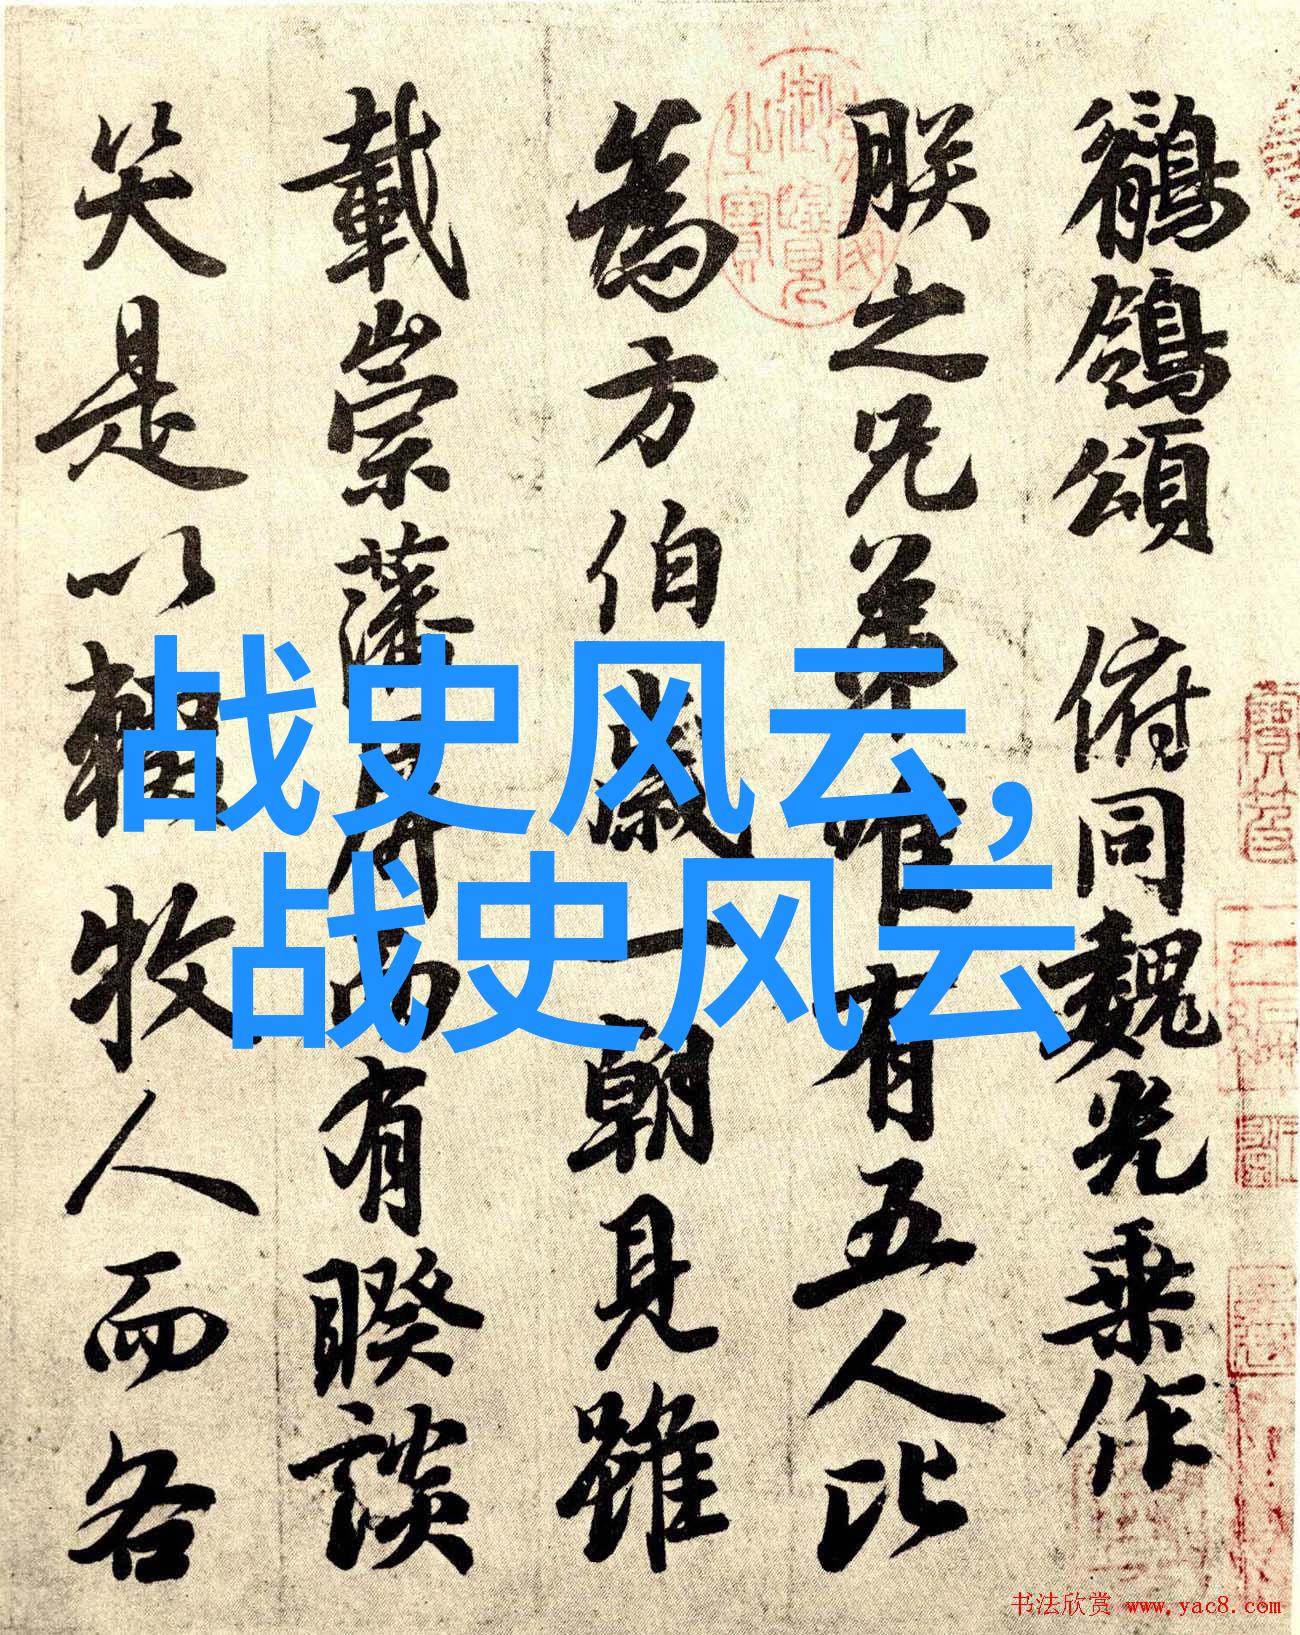 鶺鴒頌 俯同魏光乗作
朕之兄弟唯有五人比
為方伯歲一朝見雖
載崇藩屏而有睽談
笑是以輟牧人而各
战史风云,
战史风云
书法欣赏 www.yac8.com